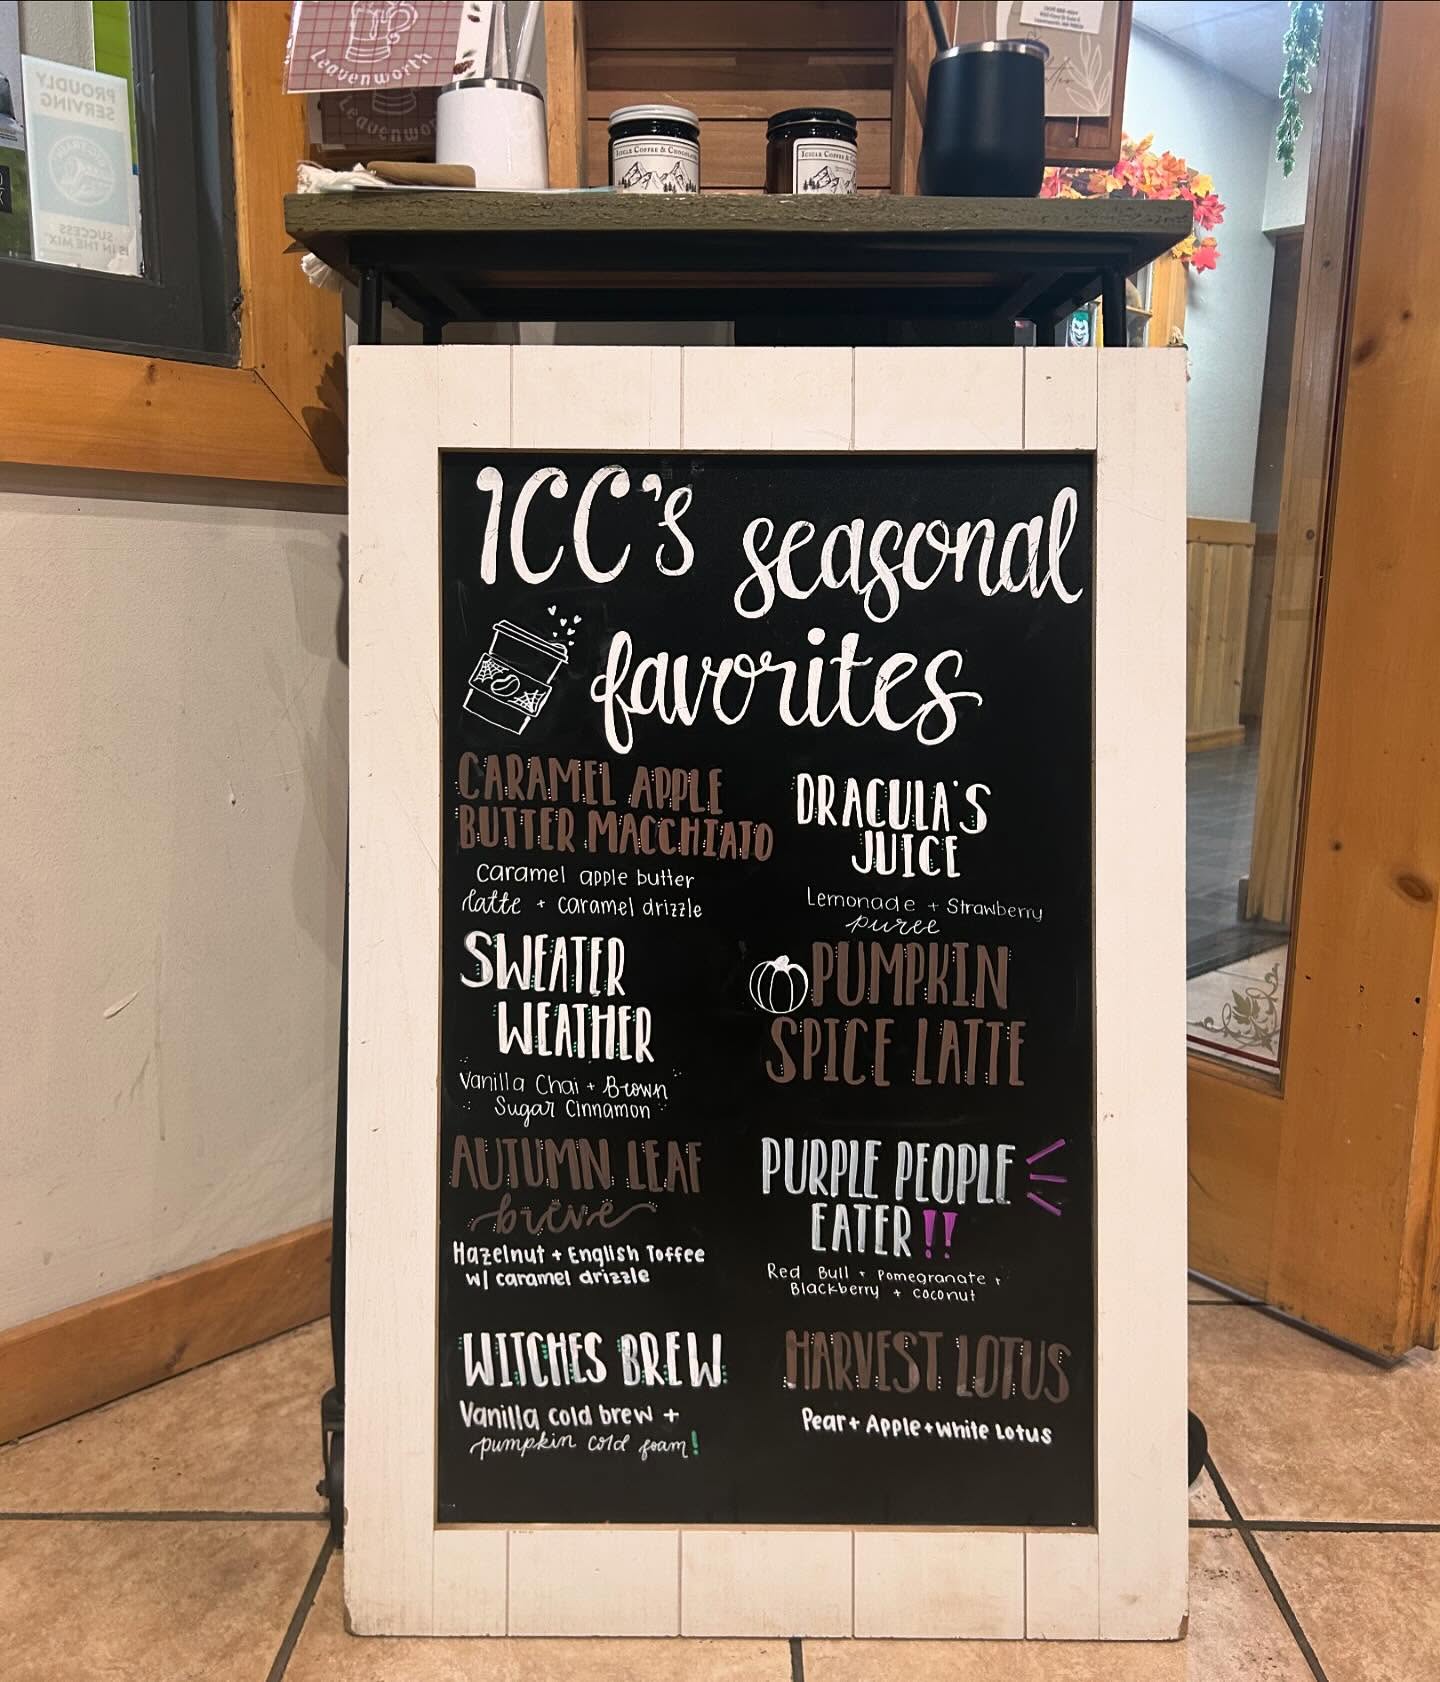 Leavenworth
Leavenworth
PROUDLY
SERVING
SUCCESS
IS IN THE MIX
ICICLE COFFEE & CHOCOLATE
ICICLE COFFEE &
ICC's seasonal
favorites
CARAMEL APPLE
BUTTER MACCHIATO
Caramel apple butter
latte + caramel drizzle
SWEATER
WEATHER
Vanilla Chai + Brown
Sugar Cinnamon
AUTUMN LEAF
breve
Hazelnut + English Toffee
w/ caramel drizzle
WITCHES BREW
Vanilla cold brew +
pumpkin cold foam!
DRACULA'S
JUICE
Lemonade + Strawberry
puree
PUMPKIN
SPICE LATTE
PURPLE PEOPLE
EATER!!
Red Bull + Pomegranate +
Blackberry + coconut
HARVEST LOTUS
Pear + Apple + White Lotus